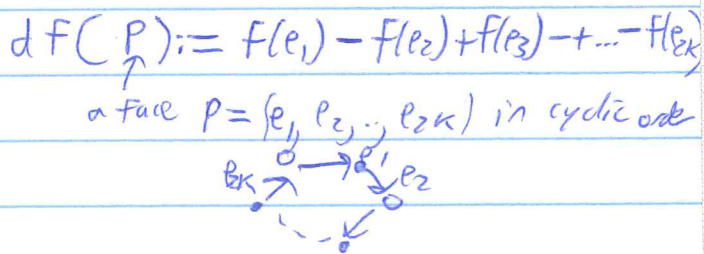 df(P):= f(e₁) - f(e₂) + f(e₃) - + ... - f(e₂ₖ)
a face P = (e₁, e₂, .., e₂ₖ) in cyclic order
e₂ₖ e₁ e₂